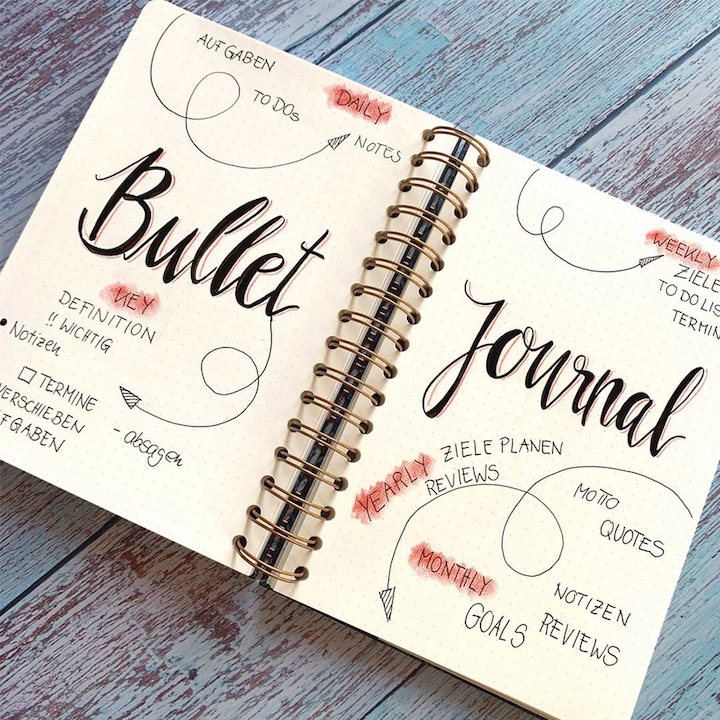 AUFGABEN
TO DOs
DAILY
NOTES
Bullet
KEY
DEFINITION
!! WICHTIG
• Notizen
☐ TERMINE
VERSCHIEBEN
- absagen
WEEKLY
ZIELE
Journal
YEARLY
ZIELE PLANEN
REVIEWS
MOTTO
QUOTES
MONTHLY
GOALS
NOTIZEN
REVIEWS